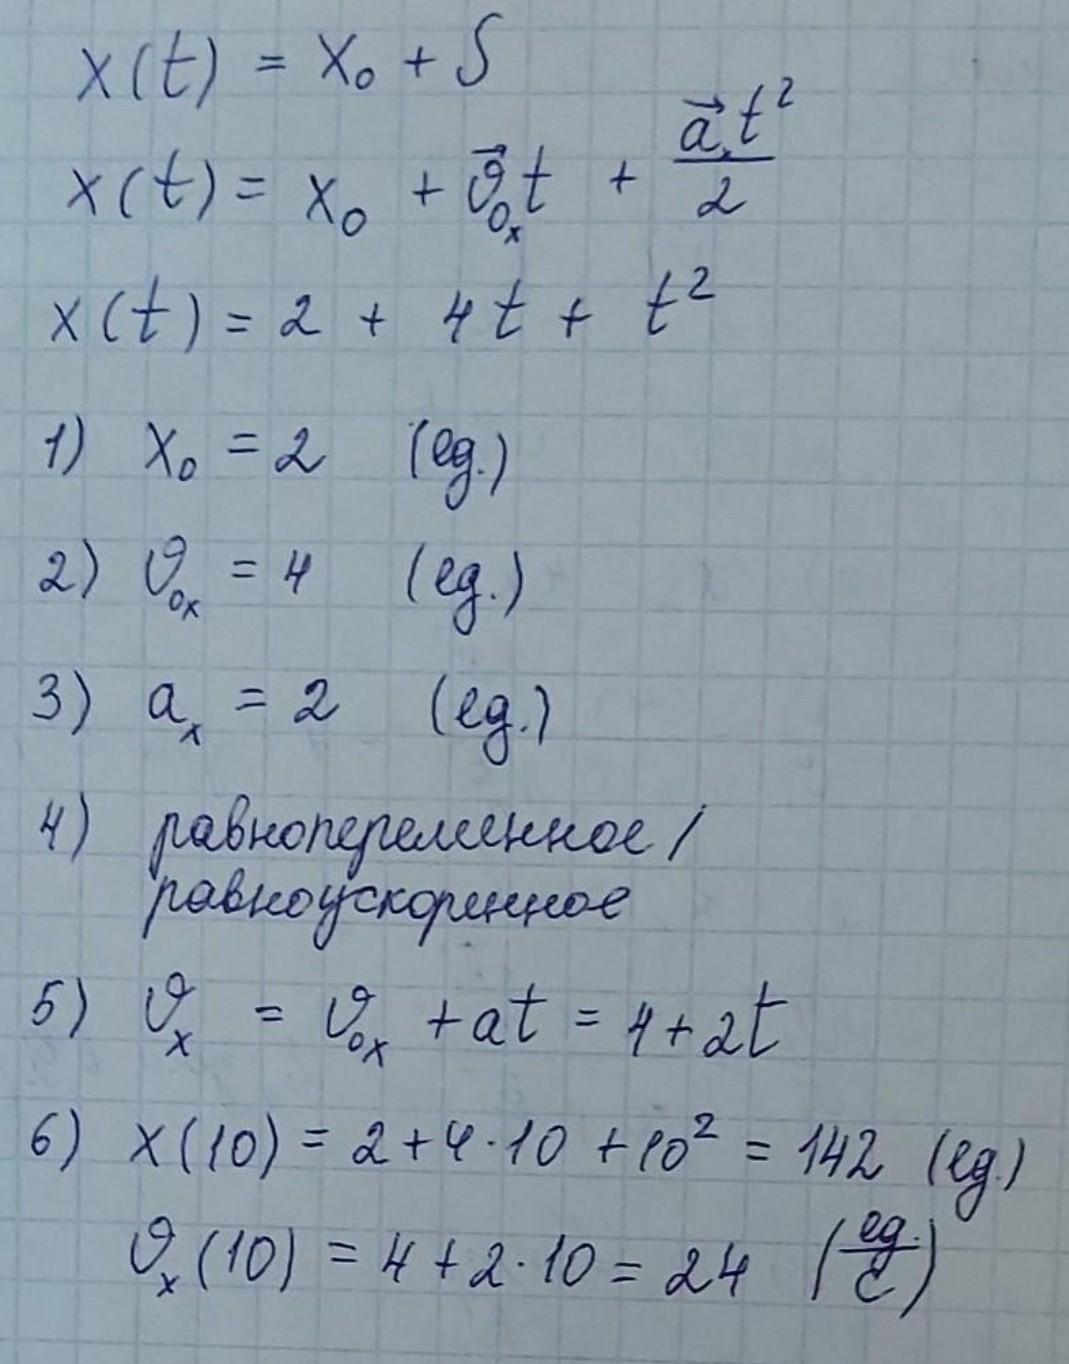 x(t) = x₀ + S
x(t) = x₀ + v⃗₀ₓt + a⃗ₓt²/2
x(t) = 2 + 4t + t²
1) x₀ = 2 (ед.)
2) v₀ₓ = 4 (ед.)
3) aₓ = 2 (ед.)
4) равнопеременное /
равноускоренное
5) vₓ = v₀ₓ + at = 4 + 2t
6) x(10) = 2 + 4·10 + 10² = 142 (ед.)
vₓ(10) = 4 + 2·10 = 24 (ед./с)